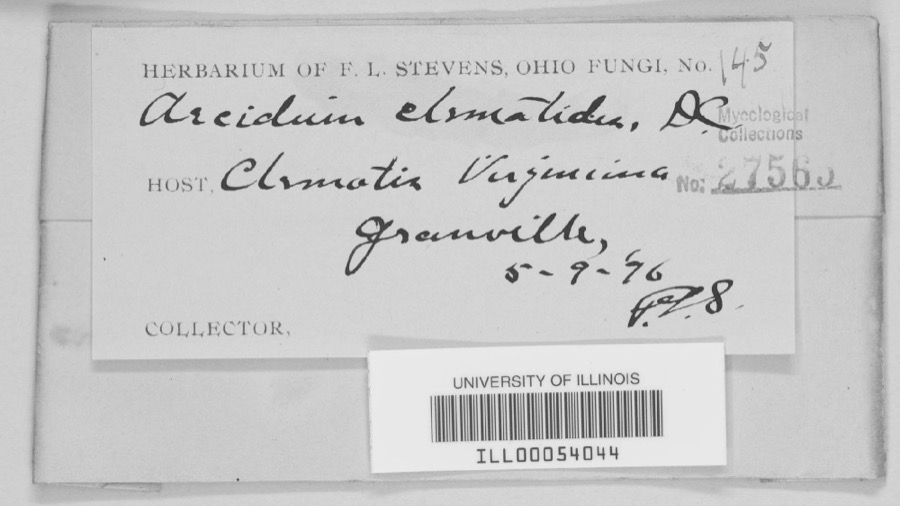 HERBARIUM OF F. L. STEVENS, OHIO FUNGI, No. 145
Aecidium clematidis, DC
Mycological
Collections
HOST, Clematis Virginiana
No: 27565
Granville,
5-9-'96
F.L.S.
COLLECTOR,
UNIVERSITY OF ILLINOIS
ILL00054044